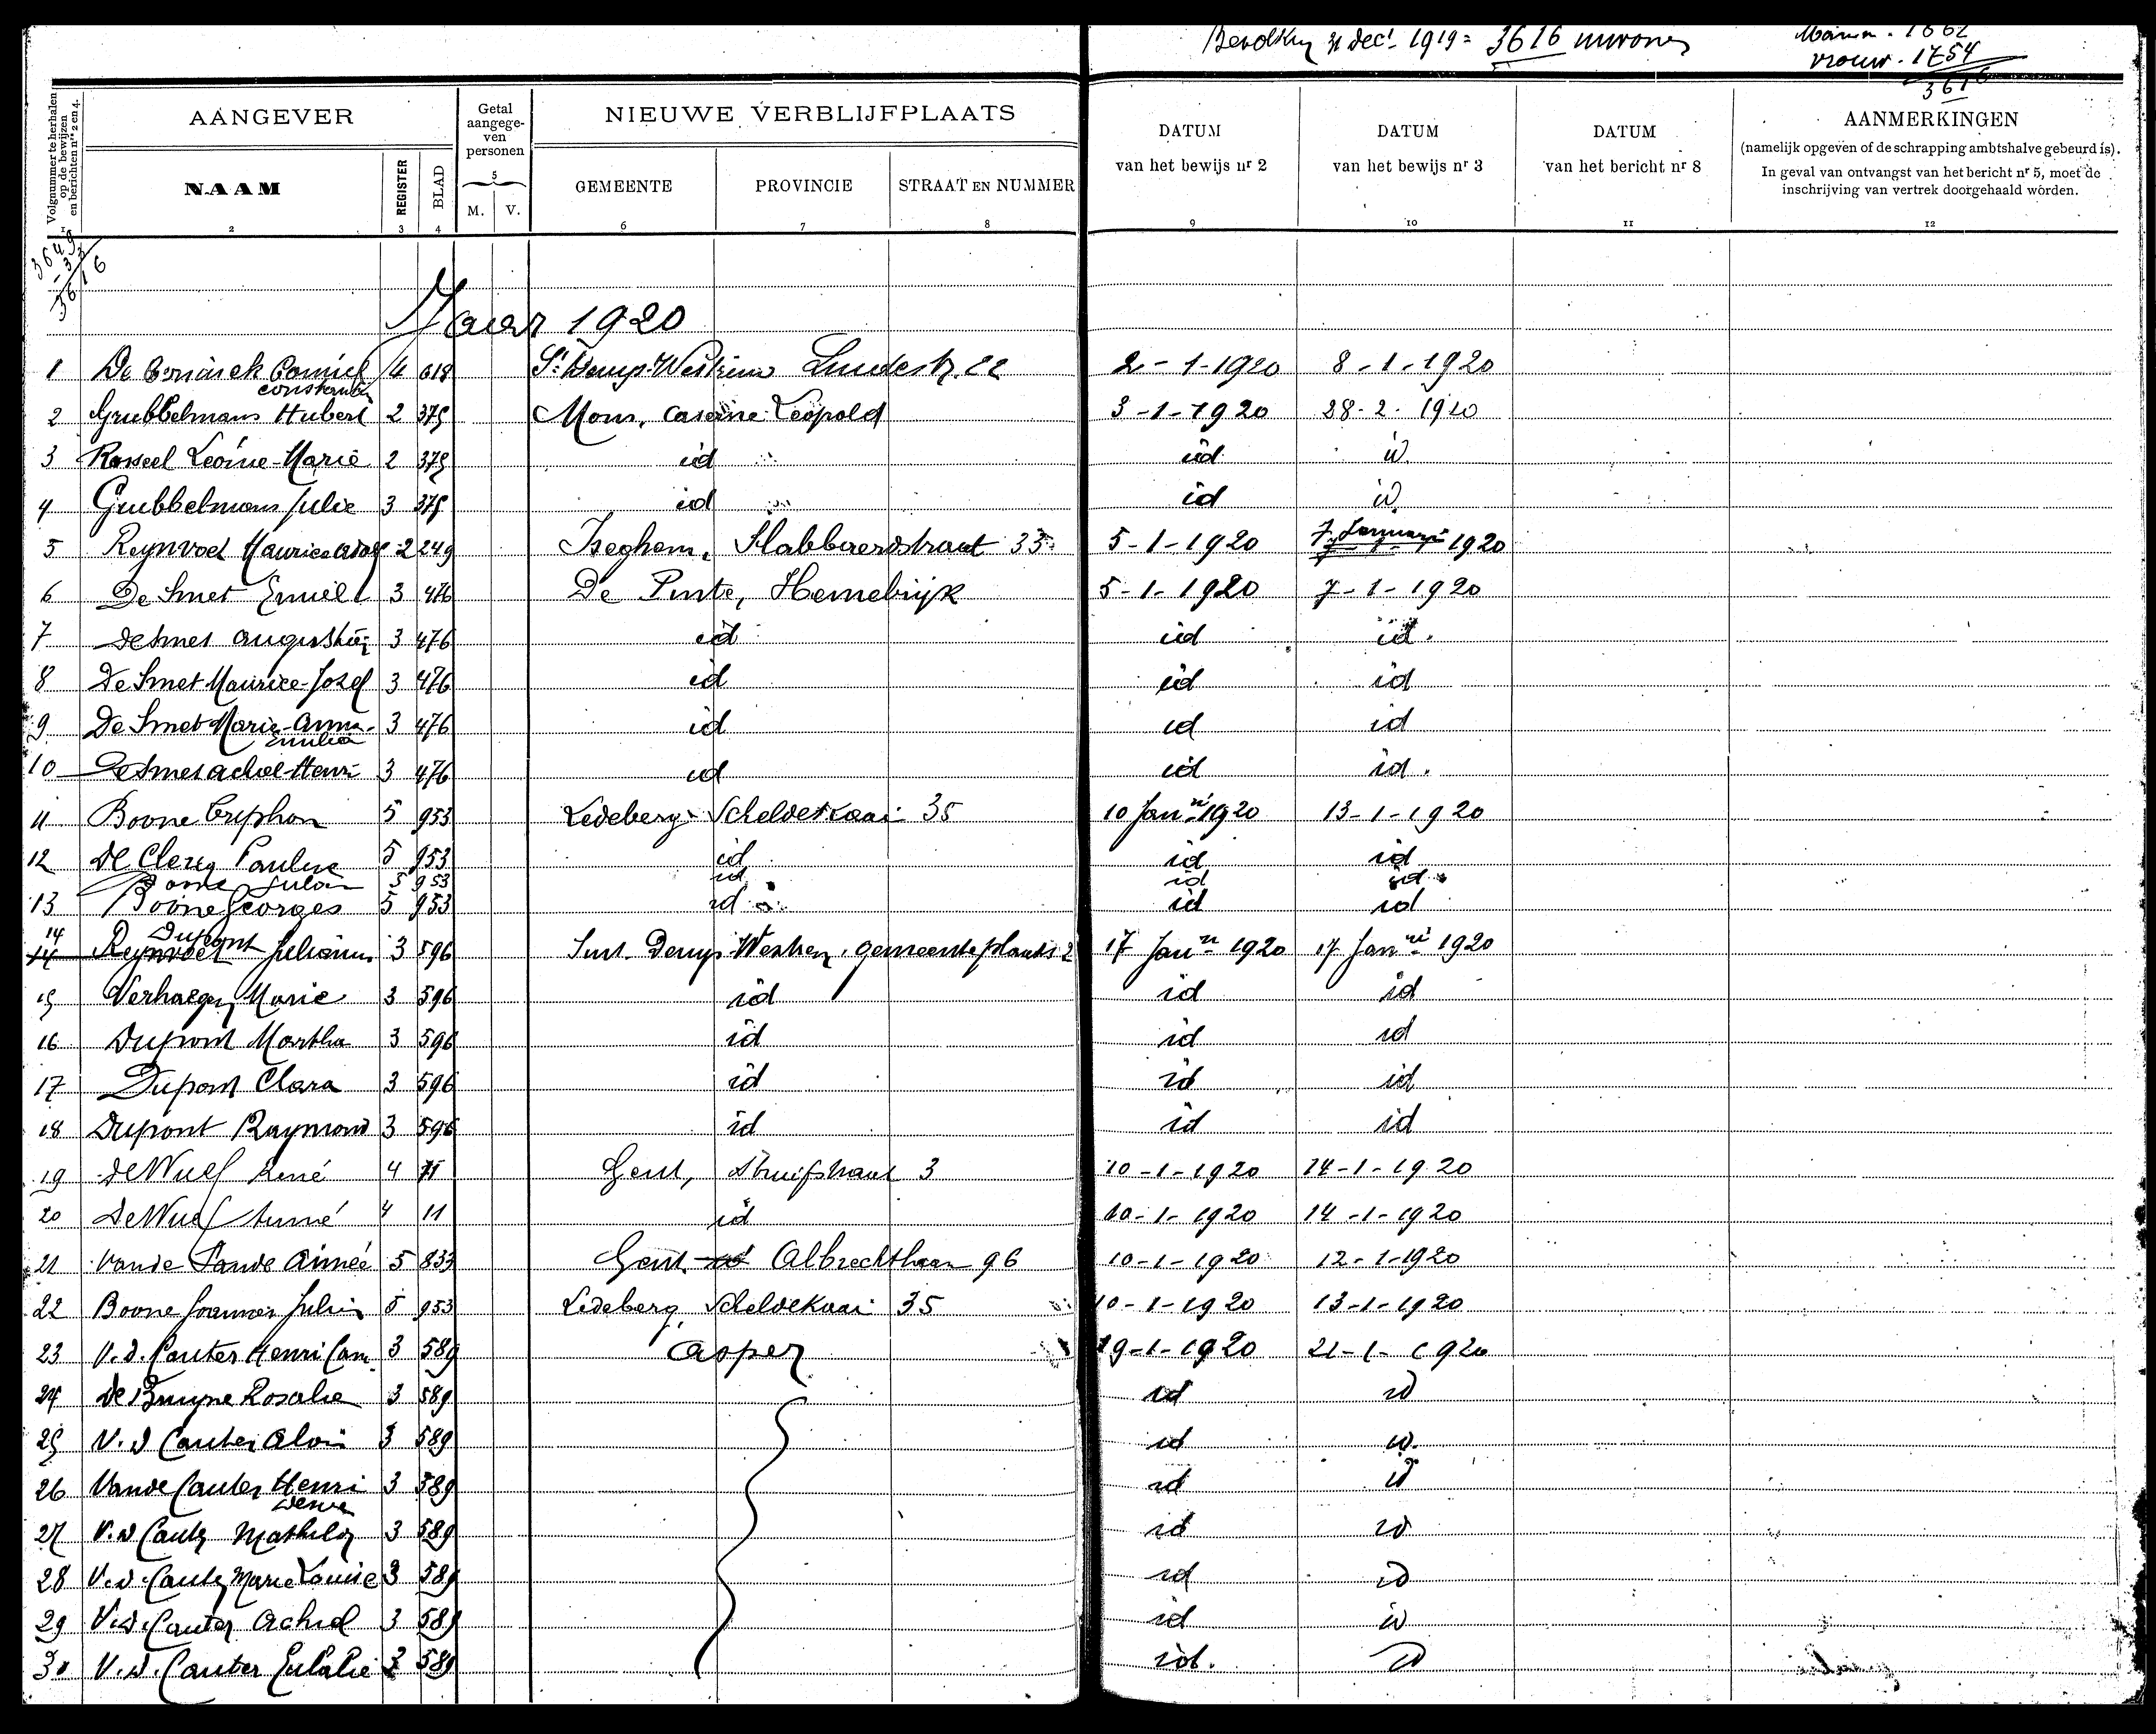 31 dec 1919 = 3616
vrouw. 1754
3616
Volgnummer te herhalen op de bewijzen en berichten nrs 2 en 4.
AANGEVER
Getal aangegeven personen
NIEUWE VERBLIJFPLAATS
DATUM van het bewijs nr 2
DATUM van het bewijs nr 3
DATUM van het bericht nr 8
AANMERKINGEN
(namelijk opgeven of de schrapping ambtshalve gebeurd is).
In geval van ontvangst van het bericht nr 5, moet de
inschrijving van vertrek doorgehaald worden.
NAAM REGISTER BLAD M. V. GEMEENTE PROVINCIE STRAAT EN NUMMER
1 2 3 4 5 6 7 8 9 10 11 12
3649
- 33
3616
Jaar 1920
1 De 4 618 22 2-1-1920 8-1-1920
2 Grubbelmans Hubert 2 375 Mons, caserne Leopold 3-1-1920 28-2-1920
3 Rosseel Leonie-Marie 2 375 id id id
4 Grubbelmans Julie 3 375 id id id
5 Reynvoet Maurice 2 249 Iseghem, Slabbaerdstraat 33 5-1-1920 7 Januari 1920
6 De Smet Emiel 3 476 De Pinte, Hemelrijk 5-1-1920 7-1-1920
7 De Smet 3 476 id id id.
8 De Smet Maurice-Jozef 3 476 id id id
9 De Smet Marie-Anna-Emilia 3 476 id id id
10 De Smet Achiel-Henri 3 476 id id id.
11 Boone Tryphon 5 953 Ledeberg Scheldekaai 35 10 Janri 1920 13-1-1920
12 De Clercq Pauline 5 953 id id id
Boone 5 953 id id id
13 Boone Georges 5 953 id id id
14 Dupont 3 596 Sint Denys Westrem, gemeenteplaats 2 17 Janri 1920 17 Janri 1920
15 Verhaegen Marie 3 596 id id id
16 Dupont Martha 3 596 id id id
17 Dupont Clara 3 596 id id id
18 Dupont Raymond 3 596 id id id
19 De Wulf René 4 11 Gent, 3 10-1-1920 14-1-1920
20 De Wulf 4 11 id 10-1-1920 14-1-1920
21 Vande Aimée 5 833 Gent Albrechtlaan 96 10-1-1920 12-1-1920
22 Boone 5 953 Ledeberg, Scheldekaai 35 10-1-1920 13-1-1920
23 V.d. Cauter Henri Cam. 3 589 Asper 19-1-1920 21-1-1920
24 De Bruyne Rosalie 3 589 id id
25 V.d Cauter 3 589 id id.
26 Vande Cauter Henri 3 589 id id
27 V.d Cauter 3 589 id id
28 V.d. Cauter Marie Louise 3 589 id id
29 V.d. Cauter Achiel 3 589 id id
30 V.d. Cauter Eulalie 3 589 id. id